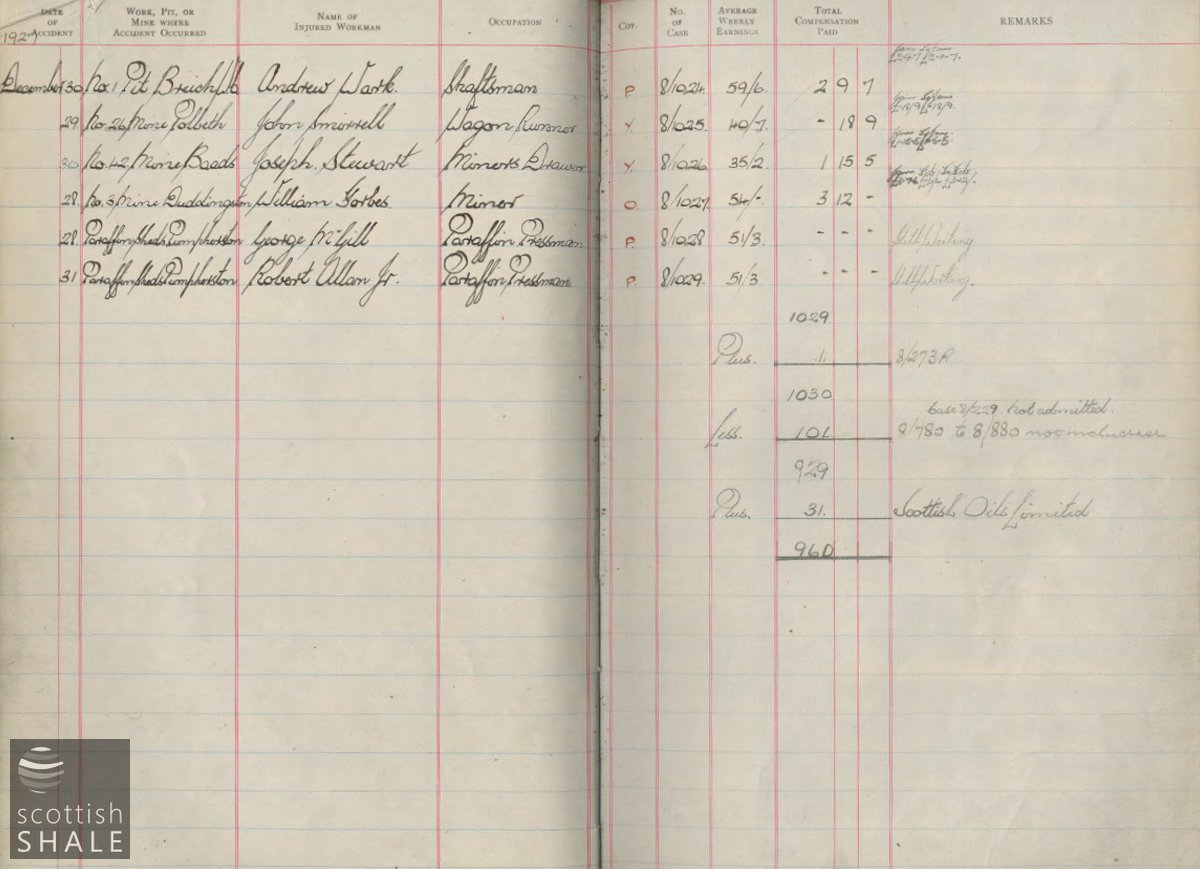 DATE OF ACCIDENT WORK, PIT, OR MINE WHERE ACCIDENT OCCURRED NAME OF INJURED WORKMAN OCCUPATION COY. NO. OF CASE AVERAGE WEEKLY EARNINGS TOTAL COMPENSATION PAID REMARKS
1927
December 30 No. 1 Pit Breich Andrew Wark. Shaftsman P. 8/1024. 59/6. 2 9 7
29 No. 26 Mine Polbeth John Smirrell Wagon Runner Y. 8/1025. 40/7. - 18 9
30 No. 42 Mine Baads Joseph Stewart Miners Drawer Y. 8/1026 35/2 1 15 5
28. No. 3 Mine Duddingston William Forbes. Miner O. 8/1027. 54/-. 3 12 -
28 Paraffin Sheds Pumpherston George McGill Paraffin Pressman P. 8/1028 51/3. - - - Still Working
31 Paraffin Sheds Pumpherston Robert Allan Jr. Paraffin Pressman P. 8/1029. 51/3 - - - Still Working.
1029
Plus. 1. 8/273A
1030
Case 8/229 not admitted.
Less. 101. 8/780 to 8/880 inclusive
929
Plus. 31. Scottish Oils Limited
960
scottish
SHALE